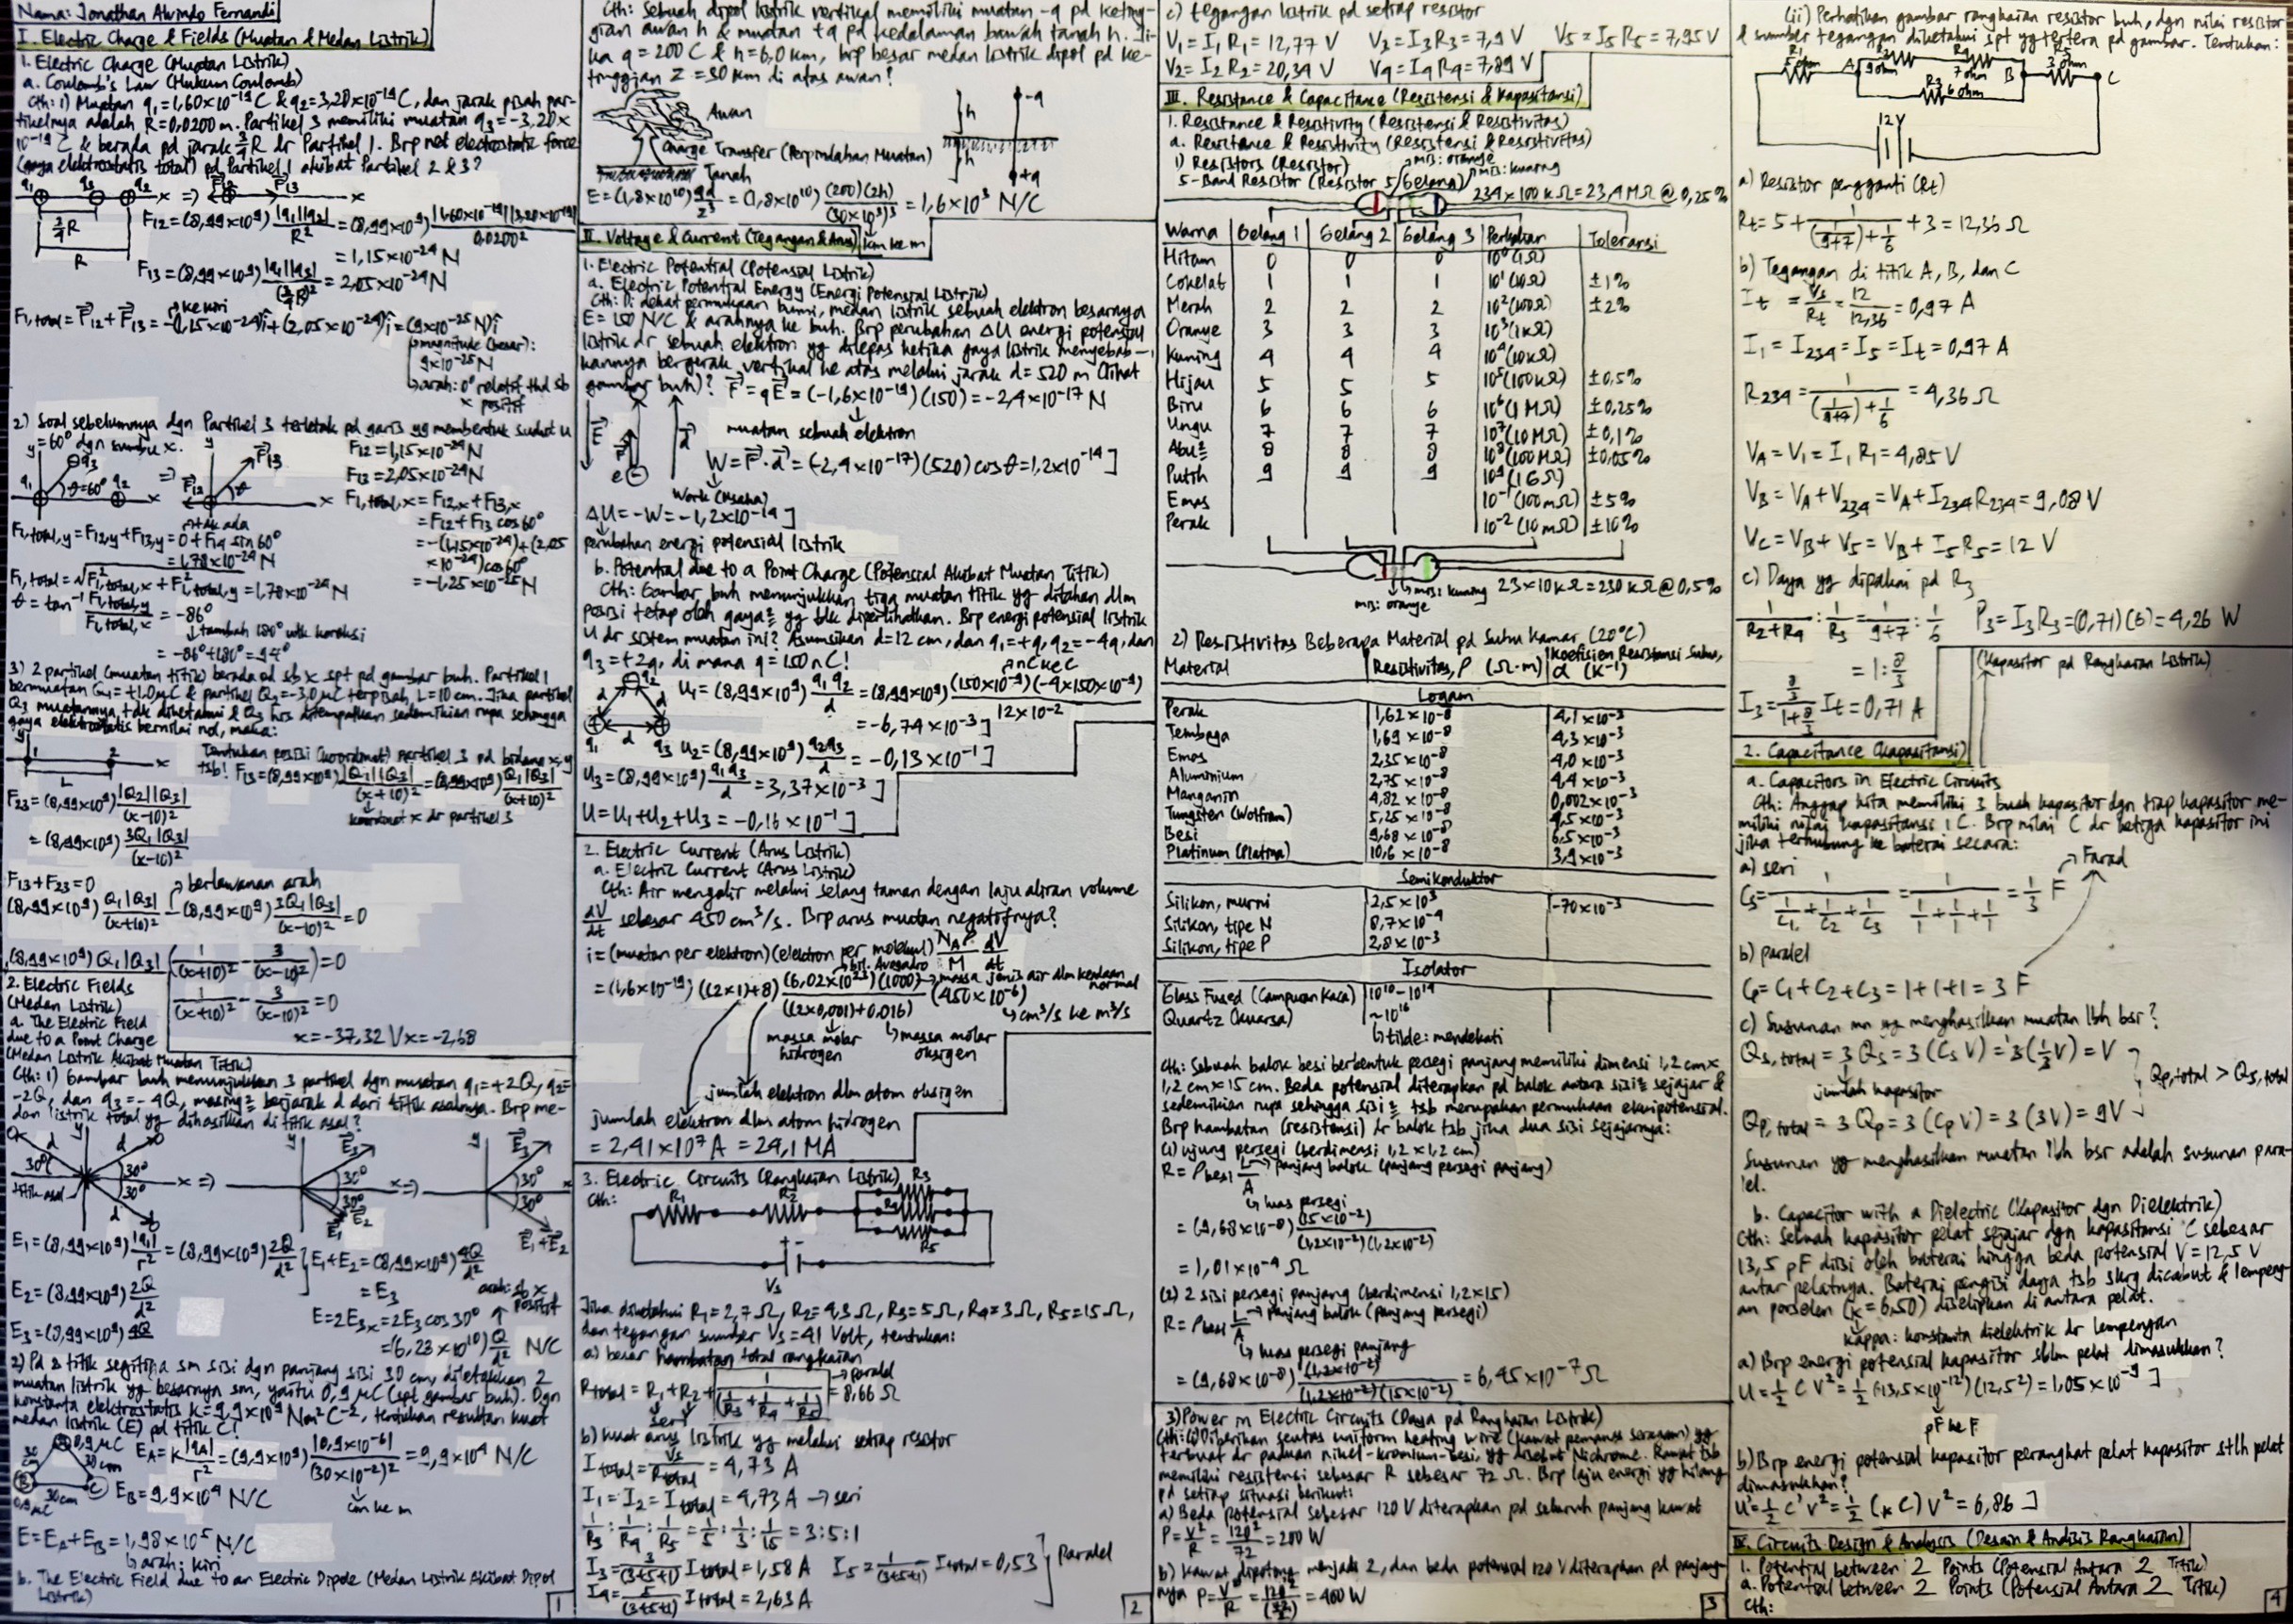 Nama: Jonathan Alvindo Fernandi
I. Electric Charge & Fields (Muatan & Medan Listrik)
1. Electric Charge (Muatan Listrik)
a. Coulomb's Law (Hukum Coulomb)
Cth: 1) Muatan q₁=1,60×10⁻¹⁹C & q₂=3,20×10⁻¹⁹C, dan jarak pisah par-
tikelnya adalah R=0,0200 m. Partikel 3 memiliki muatan q₃=-3,20×
10⁻¹⁹ C & berada pd jarak ¾R dr Partikel 1. Brp net electrostatic force
(gaya elektrostatis total) pd Partikel 1 akibat Partikel 2 & 3?
q₁ q₃ q₂ x => F₁₂ F₁₃ x
¾R
R
F₁₂=(8,99×10⁹) |q₁||q₂|/R² = (8,99×10⁹) |1,60×10⁻¹⁹||3,20×10⁻¹⁹|/0,0200²
= 1,15×10⁻²⁴ N
F₁₃=(8,99×10⁹) |q₁||q₃|/(¾R)² = 2,05×10⁻²⁴ N
ke kiri
F₁,total = F₁₂+F₁₃ = -(1,15×10⁻²⁴)î+(2,05×10⁻²⁴)î=(9×10⁻²⁵N)î
magnitude (besar):
9×10⁻²⁵ N
arah: 0° relatif thd sb
x positif
2) Soal sebelumnya dgn Partikel 3 terletak pd garis yg membentuk sudut θ
=60° dgn sumbu x.
y q₃ q₁ θ=60° q₂ x => y F₁₃ F₁₂ θ x
F₁₂=1,15×10⁻²⁴N
F₁₃=2,05×10⁻²⁴N
F₁,total,x = F₁₂,x+F₁₃,x
= F₁₂+F₁₃ cos60°
= -(1,15×10⁻²⁴)+(2,05
×10⁻²⁴)cos60°
= -1,25×10⁻²⁵ N
tdk ada
F₁,total,y=F₁₂,y+F₁₃,y=0+F₁₄ sin 60°
= 1,78×10⁻²⁴ N
F₁,total=√F₁²,total,x + F₁²,total,y = 1,78×10⁻²⁴ N
θ = tan⁻¹ F₁,total,y/F₁,total,x = -86°
tambah 180° utk koreksi
= -86°+180°=94°
3) 2 partikel (muatan titik) berada pd sb x spt pd gambar buh. Partikel 1
bermuatan Q₁=+1,0μC & partikel Q₂=-3,0μC terpisah, L=10 cm. Jika partikel
Q₃ muatannya tdk diketahui & Q₃ hrs ditempatkan sedemikian rupa sehingga
gaya elektrostatis bernilai nol, maka:
y 1 2 x
L
Tentukan posisi (koordinat) partikel 3 pd bidang x,y
tsb! F₁₃=(8,99×10⁹) |Q₁||Q₃|/(x+10)² = (8,99×10⁹) Q₁|Q₃|/(x+10)²
koordinat x dr partikel 3
F₂₃=(8,99×10⁹) |Q₂||Q₃|/(x-10)²
= (8,99×10⁹) 3Q₁|Q₃|/(x-10)²
F₁₃+F₂₃=0
berlawanan arah
(8,99×10⁹) Q₁|Q₃|/(x+10)² - (8,99×10⁹) 3Q₁|Q₃|/(x-10)² = 0
(8,99×10⁹) Q₁|Q₃| (1/(x+10)² - 3/(x-10)²)=0
1/(x+10)² - 3/(x-10)² = 0
x=-37,32 V x=-2,68
2. Electric Fields
(Medan Listrik)
a. The Electric Field
due to a Point Charge
(Medan Listrik Akibat Muatan Titik)
Cth: 1) Gambar buh menunjukkan 3 partikel dgn muatan q₁=+2Q, q₂=
-2Q, dan q₃=-4Q, masing² berjarak d dari titik asalnya. Brp me-
dan listrik total yg dihasilkan di titik asal?
d y d 30° 30° 30° titik asal d x => y E₃ 30° 30° E₂ E₁ x => y E₃ 30° 30° E₁+E₂ x
E₁=(8,99×10⁹) |q₁|/r² = (8,99×10⁹) 2Q/d²
E₁+E₂=(8,99×10⁹) 4Q/d²
= E₃
E₂=(8,99×10⁹) 2Q/d²
arah: sb x
positif
E=2E₃ₓ=2E₃ cos30°
E₃=(8,99×10⁹) 4Q/d²
=(6,23×10¹⁰) Q/d² N/C
2) Pd 2 titik segitiga sm sisi dgn panjang sisi 30 cm, diletakkan 2
muatan listrik yg besarnya sm, yaitu 0,9 μC (spt gambar buh). Dgn
konstanta elektrostatis k=9,9×10⁹ Nm²C⁻², tentukan resultan kuat
medan listrik (E) pd titik C!
A 0,9 μC 30 cm 30 cm B C 30cm 0,9 μC
E_A=k |q_A|/r² = (9,9×10⁹) |0,9×10⁻⁶|/(30×10⁻²)² = 9,9×10⁴ N/C
cm ke m
E_B=9,9×10⁴ N/C
E=E_A+E_B=1,98×10⁵ N/C
arah: kiri
b. The Electric Field due to an Electric Dipole (Medan Listrik Akibat Dipol
Listrik)
1
Cth: Sebuah dipol listrik vertikal memiliki muatan -q pd keting-
gian awan h & muatan +q pd kedalaman bawah tanah h. Ji-
ka q = 200 C & h=6,0 km, brp besar medan listrik dipol pd ke-
tinggian z = 30 km di atas awan?
Awan
Charge Transfer (Perpindahan Muatan)
Tanah
h -q
h +q
E=(1,8×10¹⁰) qd/z³ = (1,8×10¹⁰) (200)(2h)/(30×10³)³ = 1,6×10³ N/C
km ke m
II. Voltage & Current (Tegangan & Arus)
1. Electric Potential (Potensial Listrik)
a. Electric Potential Energy (Energi Potensial Listrik)
Cth: Di dekat permukaan bumi, medan listrik sebuah elektron besarnya
E=150 N/C & arahnya ke buh. Brp perubahan ΔU energi potensial
listrik dr sebuah elektron yg dilepas ketika gaya listrik menyebab-
kannya bergerak vertikal ke atas melalui jarak d=520 m (lihat
gambar buh)? F=qE=(-1,6×10⁻¹⁹)(150)=-2,4×10⁻¹⁷ N
muatan sebuah elektron
E F e d
W=F·d=(-2,4×10⁻¹⁷)(520)cosθ=1,2×10⁻¹⁴ J
Work (Usaha)
ΔU=-W=-1,2×10⁻¹⁴ J
perubahan energi potensial listrik
b. Potential due to a Point Charge (Potensial Akibat Muatan Titik)
Cth: Gambar buh menunjukkan tiga muatan titik yg ditahan dlm
posisi tetap oleh gaya² yg tdk diperlihatkan. Brp energi potensial listrik
U dr sistem muatan ini? Asumsikan d=12 cm, dan q₁=+q, q₂=-4q, dan
q₃=+2q, di mana q=150 nC!
nC ke C
q₂ d d q₁ d q₃
U₁=(8,99×10⁹) q₁q₂/d = (8,99×10⁹) (150×10⁻⁹)(-4×150×10⁻⁹)/12×10⁻²
= -6,74×10⁻³ J
U₂=(8,99×10⁹) q₂q₃/d = -0,13×10⁻¹ J
U₃=(8,99×10⁹) q₁q₃/d = 3,37×10⁻³ J
U=U₁+U₂+U₃=-0,16×10⁻¹ J
2. Electric Current (Arus Listrik)
a. Electric Current (Arus Listrik)
Cth: Air mengalir melalui selang taman dengan laju aliran volume
dV/dt sebesar 450 cm³/s. Brp arus muatan negatifnya?
i=(muatan per elektron)(elektron per molekul) N_A ρ/M dV/dt
bil. Avogadro
massa jenis air dlm keadaan
normal
=(1,6×10⁻¹⁹)((2×1)+8) (6,02×10²³)(1000)/((2×0,001)+0,016) (450×10⁻⁶)
cm³/s ke m³/s
massa molar
hidrogen
massa molar
oksigen
jumlah elektron dlm atom oksigen
jumlah elektron dlm atom hidrogen
= 2,41×10⁷ A = 24,1 MA
3. Electric Circuits (Rangkaian Listrik)
Cth: R₁ R₂ R₃ R₄ R₅
+ -
Vs
Jika diketahui R₁=2,7 Ω, R₂=4,3 Ω, R₃=5 Ω, R₄=3 Ω, R₅=15 Ω,
dan tegangan sumber Vs=41 Volt, tentukan:
a) besar hambatan total rangkaian
paralel
Rtotal = R₁+R₂+ 1/(1/R₃+1/R₄+1/R₅) = 8,66 Ω
seri
b) kuat arus listrik yg melalui setiap resistor
Itotal=Vs/Rtotal = 4,73 A
I₁=I₂=Itotal=4,73 A → seri
1/R₃ : 1/R₄ : 1/R₅ = 1/5 : 1/3 : 1/15 = 3:5:1
I₃=3/(3+5+1) Itotal=1,58 A I₅=1/(3+5+1) Itotal=0,53
I₄=5/(3+5+1) Itotal=2,63 A
Paralel
2
c) tegangan listrik pd setiap resistor
V₁=I₁R₁=12,77 V V₃=I₃R₃=7,9 V V₅=I₅R₅=7,95 V
V₂=I₂R₂=20,34 V V₄=I₄R₄=7,89 V
III. Resistance & Capacitance (Resistensi & Kapasitansi)
1. Resistance & Resistivity (Resistensi & Resistivitas)
a. Resistance & Resistivity (Resistensi & Resistivitas)
1) Resistors (Resistor)
mis: orange
5-Band Resistor (Resistor 5 Gelang)
mis: kuning
234×100 kΩ=23,4 MΩ @ 0,25%
Warna Gelang 1 Gelang 2 Gelang 3 Perkalian Toleransi
Hitam 0 0 0 10⁰(1Ω)
Cokelat 1 1 1 10¹(10Ω) ±1%
Merah 2 2 2 10²(100Ω) ±2%
Orange 3 3 3 10³(1kΩ)
Kuning 4 4 4 10⁴(10kΩ)
Hijau 5 5 5 10⁵(100kΩ) ±0,5%
Biru 6 6 6 10⁶(1MΩ) ±0,25%
Ungu 7 7 7 10⁷(10MΩ) ±0,1%
Abu² 8 8 8 10⁸(100MΩ) ±0,05%
Putih 9 9 9 10⁹(1GΩ)
Emas 10⁻¹(100mΩ) ±5%
Perak 10⁻²(10mΩ) ±10%
mis: orange
mis: kuning
23×10kΩ=230 kΩ @ 0,5%
2) Resistivitas Beberapa Material pd Suhu Kamar (20°C)
Material Resistivitas, ρ (Ω·m) Koefisien Resistansi Suhu, α (K⁻¹)
Logam
Perak 1,62×10⁻⁸ 4,1×10⁻³
Tembaga 1,69×10⁻⁸ 4,3×10⁻³
Emas 2,35×10⁻⁸ 4,0×10⁻³
Aluminium 2,75×10⁻⁸ 4,4×10⁻³
Manganin 4,82×10⁻⁸ 0,002×10⁻³
Tungsten (Wolfram) 5,25×10⁻⁸ 4,5×10⁻³
Besi 9,68×10⁻⁸ 6,5×10⁻³
Platinum (Platina) 10,6×10⁻⁸ 3,9×10⁻³
Semikonduktor
Silikon, murni 2,5×10³ -70×10⁻³
Silikon, tipe N 8,7×10⁻⁴
Silikon, tipe P 2,8×10⁻³
Isolator
Glass Fused (Campuran Kaca) 10¹⁰-10¹⁴
Quartz (Kuarsa) ~10¹⁶
tilde: mendekati
Cth: Sebuah balok besi berbentuk persegi panjang memiliki dimensi 1,2 cm×
1,2 cm×15 cm. Beda potensial diterapkan pd balok antara sisi² sejajar &
sedemikian rupa sehingga sisi² tsb merupakan permukaan ekuipotensial.
Brp hambatan (resistensi) dr balok tsb jika dua sisi sejajarnya:
(1) ujung persegi (berdimensi 1,2×1,2 cm)
R=ρbesi L/A → panjang balok (panjang persegi panjang)
luas persegi
= (9,68×10⁻⁸) (15×10⁻²)/(1,2×10⁻²)(1,2×10⁻²)
= 1,01×10⁻⁴ Ω
(2) 2 sisi persegi panjang (berdimensi 1,2×15)
R=ρbesi L/A → panjang balok (panjang persegi)
luas persegi panjang
= (9,68×10⁻⁸) (1,2×10⁻²)/(1,2×10⁻²)(15×10⁻²) = 6,45×10⁻⁷ Ω
3) Power in Electric Circuits (Daya pd Rangkaian Listrik)
Cth: (i) Diberikan seutas uniform heating wire (kawat pemanas seragam) yg
terbuat dr paduan nikel-kromium-besi, yg disebut Nichrome. Kawat tsb
memiliki resistensi sebesar R sebesar 72 Ω. Brp laju energi yg hilang
pd setiap situasi berikut:
a) Beda potensial sebesar 120 V diterapkan pd seluruh panjang kawat
P=V²/R=120²/72=200 W
b) Kawat dipotong menjadi 2, dan beda potensial 120 V diterapkan pd panjang-
nya P=V²/R=120²/(72/2)=400 W
3
(ii) Perhatikan gambar rangkaian resistor buh, dgn nilai resistor
& sumber tegangan diketahui spt yg tertera pd gambar. Tentukan:
R₁ 5 ohm A R₂ 9 ohm R₄ 7 ohm R₃ 6 ohm B R₅ 3 ohm C
12 V
a) Resistor pengganti (Rt)
Rt=5+ 1/(1/(9+7)+1/6) +3=12,36 Ω
b) Tegangan di titik A, B, dan C
It = Vs/Rt = 12/12,36 = 0,97 A
I₁=I₂₃₄=I₅=It=0,97 A
R₂₃₄= 1/((1/(9+7))+1/6) = 4,36 Ω
V_A=V₁=I₁R₁=4,85 V
V_B=V_A+V₂₃₄=V_A+I₂₃₄R₂₃₄=9,08 V
V_C=V_B+V₅=V_B+I₅R₅=12 V
c) Daya yg dipakai pd R₃
1/(R₂+R₄) : 1/R₃ = 1/(9+7) : 1/6 P₃=I₃R₃=(0,71)(6)=4,26 W
= 1 : 8/3
I₃= (8/3)/(1+8/3) It=0,71 A
(Kapasitor pd Rangkaian Listrik)
2. Capacitance (Kapasitansi)
a. Capacitors in Electric Circuits
Cth: Anggap kita memiliki 3 buah kapasitor dgn tiap kapasitor me-
miliki nilai kapasitansi 1 C. Brp nilai C dr ketiga kapasitor ini
jika terhubung ke baterai secara:
a) seri
Farad
Cs= 1/(1/C₁+1/C₂+1/C₃) = 1/(1/1+1/1+1/1) = 1/3 F
b) paralel
Cp=C₁+C₂+C₃=1+1+1=3 F
c) Susunan mn yg menghasilkan muatan lbh bsr?
Qs,total=3 Qs=3(Cs V)=3(1/3 V)=V
jumlah kapasitor
Qp,total > Qs,total
Qp,total=3 Qp=3(Cp V)=3(3V)=9V
Susunan yg menghasilkan muatan lbh bsr adalah susunan para-
lel.
b. Capacitor with a Dielectric (Kapasitor dgn Dielektrik)
Cth: Sebuah kapasitor pelat sejajar dgn kapasitansi C sebesar
13,5 pF diisi oleh baterai hingga beda potensial V=12,5 V
antar pelatnya. Baterai pengisi daya tsb skrg dicabut & lempeng-
an porselen (κ=6,50) diselipkan di antara pelat.
kappa: konstanta dielektrik dr lempengan
a) Brp energi potensial kapasitor sblm pelat dimasukkan?
U=½ C V²=½ (13,5×10⁻¹²)(12,5²)=1,05×10⁻⁹ J
pF ke F
b) Brp energi potensial kapasitor perangkat pelat kapasitor stlh pelat
dimasukkan?
U'=½ C'V²=½ (κ C)V²=6,86 J
IV. Circuits Design & Analysis (Desain & Analisis Rangkaian)
1. Potential between 2 Points (Potensial Antara 2 Titik)
a. Potential between 2 Points (Potensial Antara 2 Titik)
Cth:
4